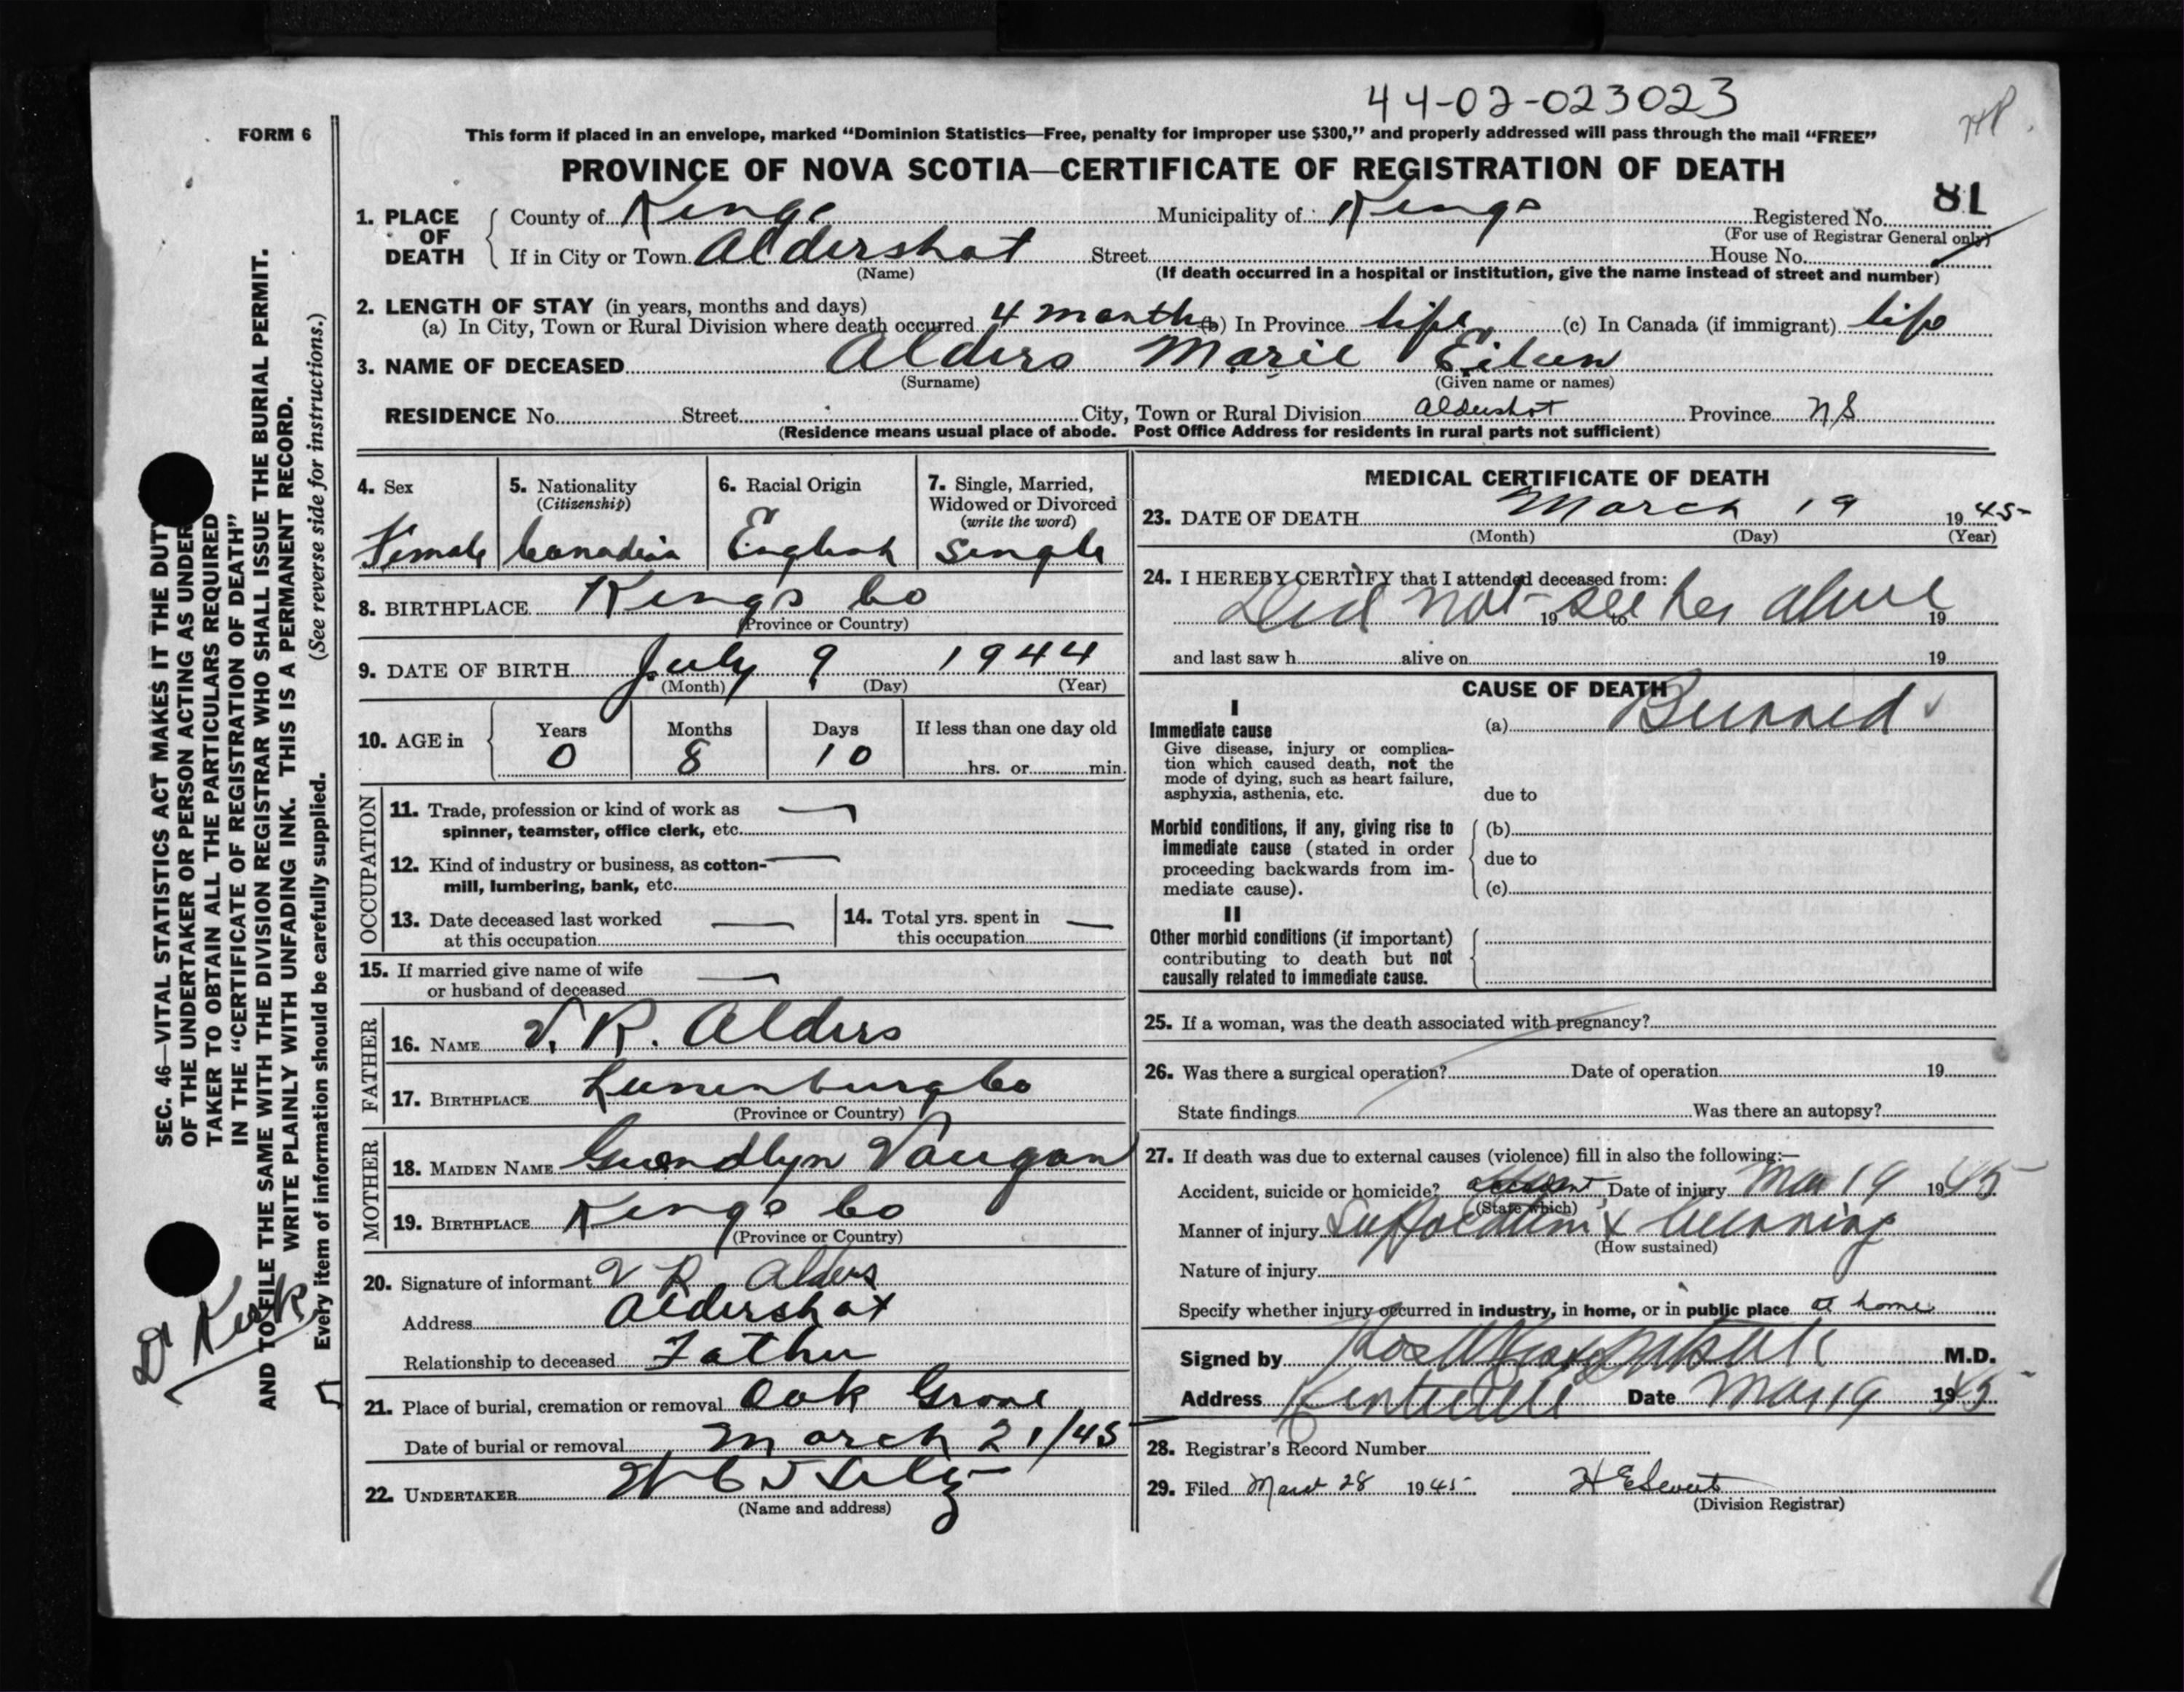 44-02-023023
HP.
FORM 6
This form if placed in an envelope, marked “Dominion Statistics—Free, penalty for improper use $300,” and properly addressed will pass through the mail “FREE”
PROVINCE OF NOVA SCOTIA—CERTIFICATE OF REGISTRATION OF DEATH
81
1. PLACE OF DEATH County of Kings Municipality of Kings Registered No.
(For use of Registrar General only)
If in City or Town Aldershot Street House No.
(Name) (If death occurred in a hospital or institution, give the name instead of street and number)
2. LENGTH OF STAY (in years, months and days)
(a) In City, Town or Rural Division where death occurred 4 months (b) In Province life (c) In Canada (if immigrant) life
3. NAME OF DECEASED Alders Marie Eileen
(Surname) (Given name or names)
RESIDENCE No. Street City, Town or Rural Division Aldershot Province N.S
(Residence means usual place of abode. Post Office Address for residents in rural parts not sufficient)
4. Sex
Female
5. Nationality
(Citizenship)
Canadian
6. Racial Origin
English
7. Single, Married,
Widowed or Divorced
(write the word)
Single
8. BIRTHPLACE Kings Co
(Province or Country)
9. DATE OF BIRTH July 9 1944
(Month) (Day) (Year)
10. AGE in Years Months Days If less than one day old
0 8 10 hrs. or min.
OCCUPATION
11. Trade, profession or kind of work as
spinner, teamster, office clerk, etc.
12. Kind of industry or business, as cotton-
mill, lumbering, bank, etc.
13. Date deceased last worked
at this occupation
14. Total yrs. spent in
this occupation
15. If married give name of wife
or husband of deceased
FATHER
16. NAME V. R. Alders
17. BIRTHPLACE Lunenburg Co
(Province or Country)
MOTHER
18. MAIDEN NAME Gwendlyn Vaugan
19. BIRTHPLACE Kings Co
(Province or Country)
20. Signature of informant V R. Alders
Address Aldershot
Relationship to deceased Father
21. Place of burial, cremation or removal Oak Grove
Date of burial or removal March 21/45
22. UNDERTAKER
(Name and address)
MEDICAL CERTIFICATE OF DEATH
23. DATE OF DEATH March 19 1945
(Month) (Day) (Year)
24. I HEREBY CERTIFY that I attended deceased from:
Did not see her alive
19 to 19
and last saw h alive on 19
CAUSE OF DEATH
I
Immediate cause
Give disease, injury or complica-
tion which caused death, not the
mode of dying, such as heart failure,
asphyxia, asthenia, etc.
(a) Burned
due to
Morbid conditions, if any, giving rise to
immediate cause (stated in order
proceeding backwards from im-
mediate cause).
(b)
due to
(c)
II
Other morbid conditions (if important)
contributing to death but not
causally related to immediate cause.
25. If a woman, was the death associated with pregnancy?
26. Was there a surgical operation? Date of operation 19
State findings Was there an autopsy?
27. If death was due to external causes (violence) fill in also the following:—
Accident, suicide or homicide? accident Date of injury Mar 19 1945
(State which)
Manner of injury Suffocation & burning
(How sustained)
Nature of injury
Specify whether injury occurred in industry, in home, or in public place at home
Signed by M.D.
Address Kentville Date Mar 19 1945
28. Registrar's Record Number
29. Filed March 28 1945
(Division Registrar)
SEC. 46—VITAL STATISTICS ACT MAKES IT THE DUTY
OF THE UNDERTAKER OR PERSON ACTING AS UNDER
TAKER TO OBTAIN ALL THE PARTICULARS REQUIRED
IN THE “CERTIFICATE OF REGISTRATION OF DEATH”
AND TO FILE THE SAME WITH THE DIVISION REGISTRAR WHO SHALL ISSUE THE BURIAL PERMIT.
WRITE PLAINLY WITH UNFADING INK. THIS IS A PERMANENT RECORD.
Every item of information should be carefully supplied. (See reverse side for instructions.)
Dr